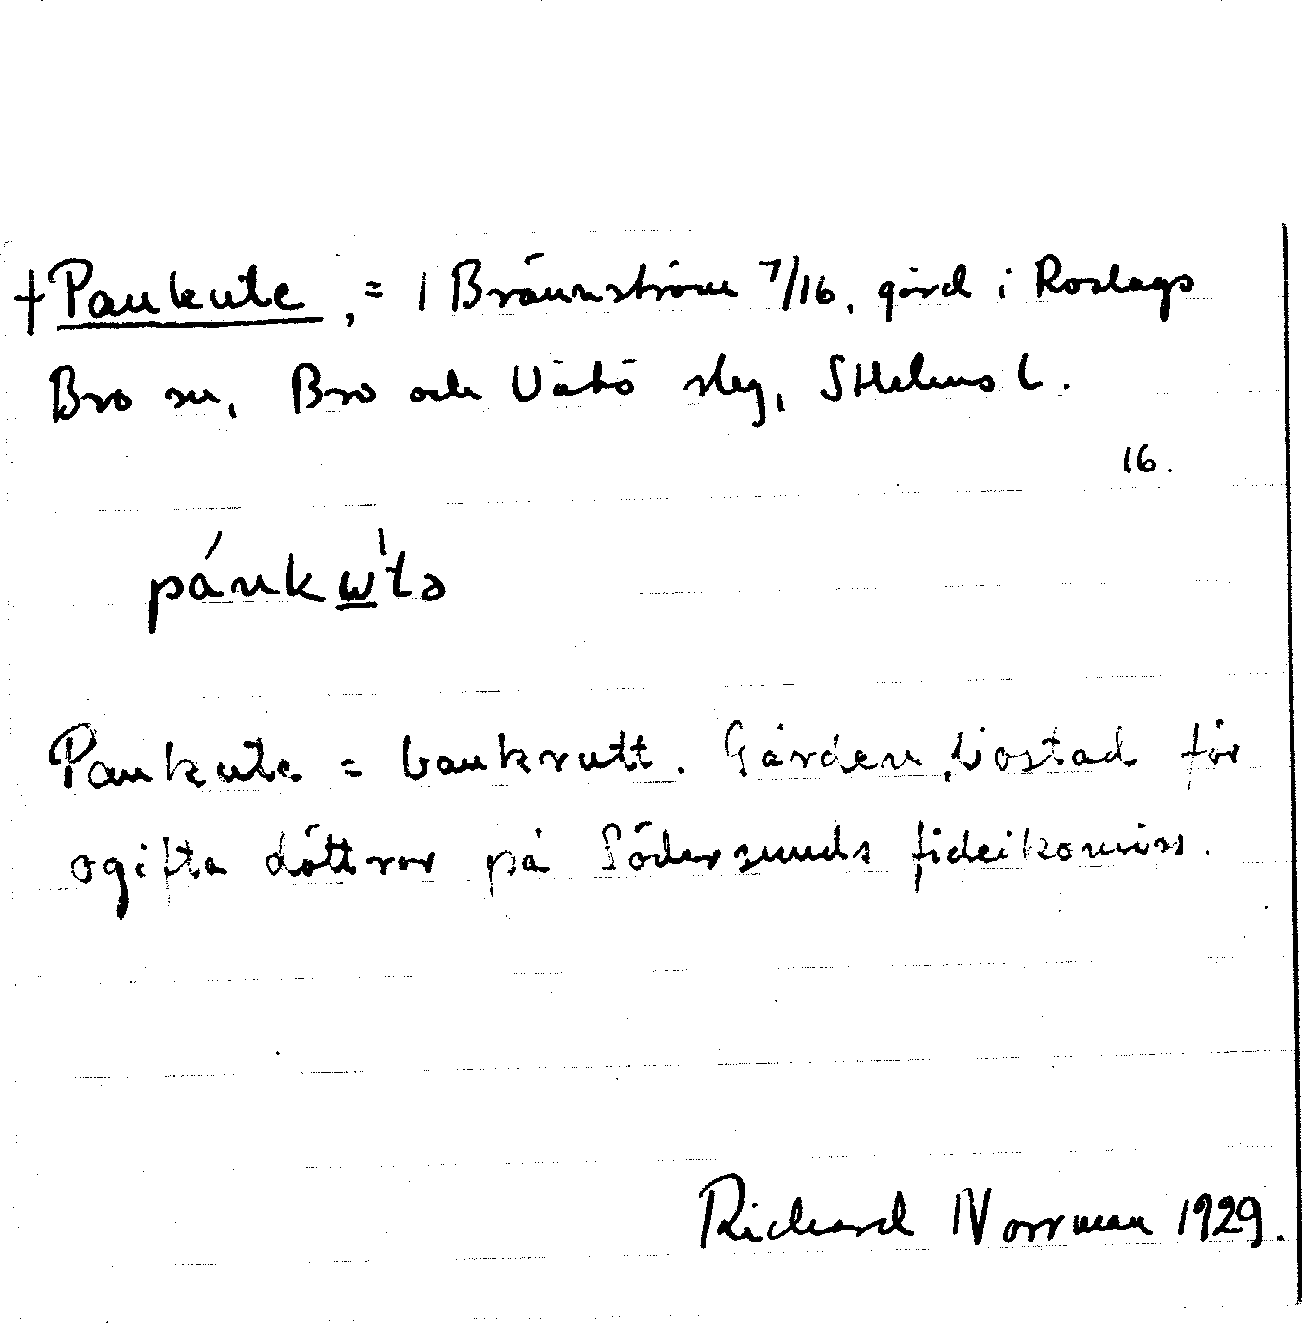 †Pankute, = 1 Brännström 7/16, gård i Roslags
Bro sn, Bro och Vätö slag, SthlmsL.
16.
pánkɯ̲'tə
Pankute = bankrutt. Gården bostad för
ogifta döttrar på Södersunds fideikomiss.
Richard Norrman 1929.